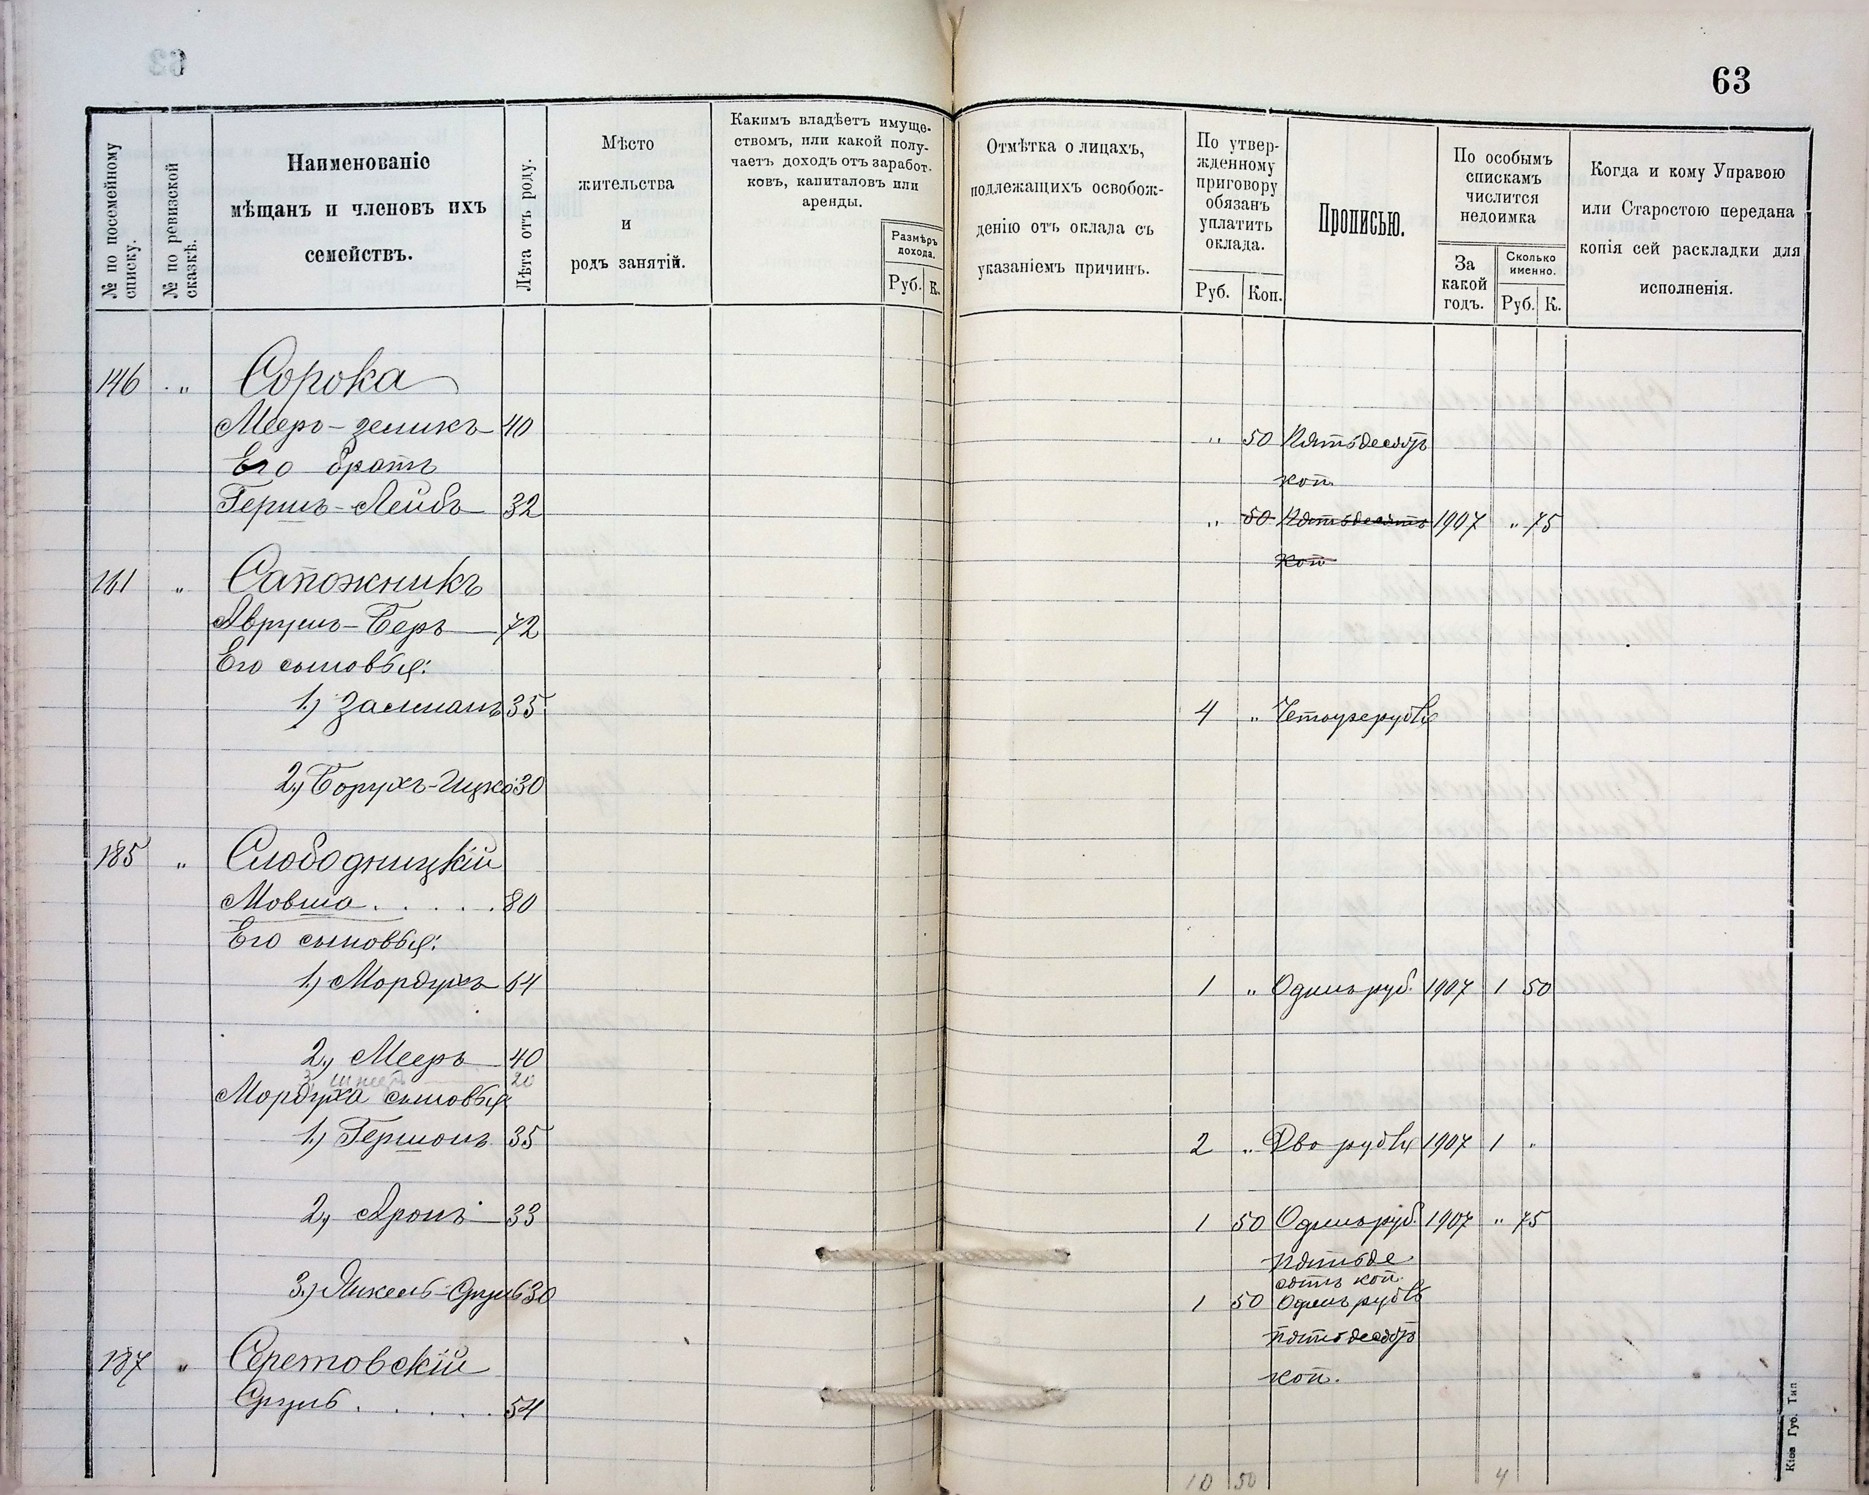 63
№ по посемейному списку.
№ по ревизской сказкѣ.
Наименованіе
мѣщанъ и членовъ ихъ
семействъ.
Лѣта отъ роду.
Мѣсто
жительства
и
родъ занятій.
Какимъ владѣетъ имуще-
ствомъ, или какой полу-
чаетъ доходъ отъ заработ-
ковъ, капиталовъ или
аренды.
Размѣръ
дохода.
Руб. К.
Отмѣтка о лицахъ,
подлежащихъ освобож-
денію отъ оклада съ
указаніемъ причинъ.
По утвер-
жденному
приговору
обязанъ
уплатить
оклада.
Руб. Коп.
Прописью.
По особымъ
спискамъ
числится
недоимка
За
какой
годъ.
Сколько
именно.
Руб. К.
Когда и кому Управою
или Старостою передана
копія сей раскладки для
исполненія.
146 " Сорока
Мееръ-Зеликъ 40 " 50 Пятьдесятъ
Его братъ
коп.
Гершъ-Лейбъ 32 " 50 Пятьдесятъ 1907 " 75
коп
161 " Сапожникъ
Аврумъ-Беръ 72
Его сыновья:
1.) Залманъ 35 4 " Четыре рубля
2.) Борухъ-Ицко 30
185 " Слободницкій
Мовша . . . . . 80
Его сыновья:
1.) Мордухъ 64 1 " Одинъ руб. 1907 1 50
2.) Мееръ 40
3, 20
Мордуха сыновья
1.) Гершонъ 35 2 " Два рубля 1907 1 "
2.) Аронъ 33 1 50 Одинъ руб. 1907 " 75
пятьде
сятъ коп.
3.) Янкель-Сруль 30 1 50 Одинъ рубль
пятьдесятъ
187 " Серетовскій
коп.
Сруль . . . . . 54
10 50 4
Кіев. Губ. Тип